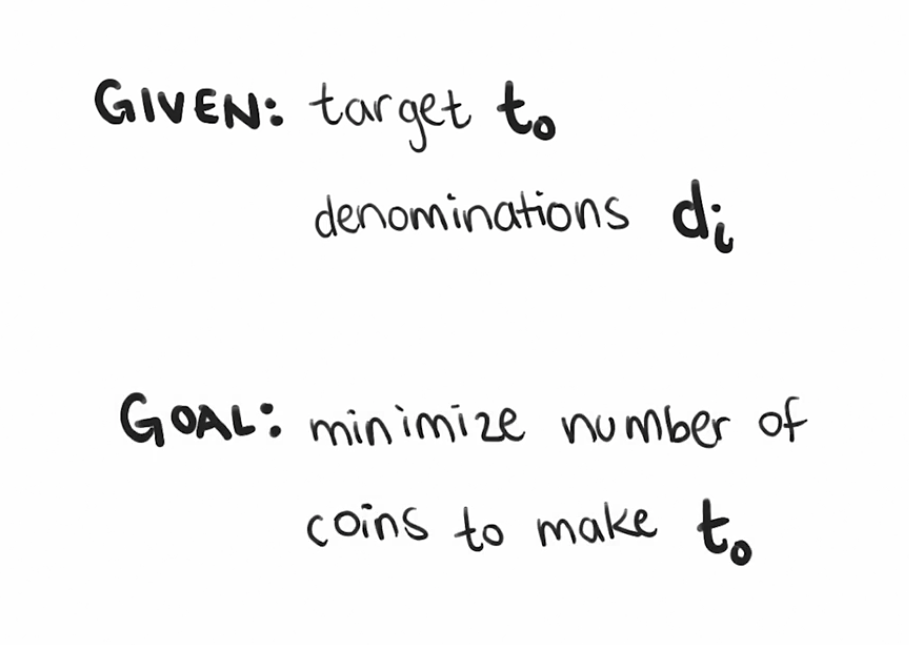 GIVEN: target t₀
denominations dᵢ
GOAL: minimize number of
coins to make t₀